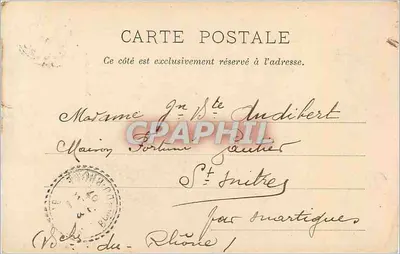 CARTE POSTALE
Ce côté est exclusivement réservé à l'adresse.
Madame Jn Bte Audibert
CPAPHIL
Maison Fortuné Gautier
St Mitres
par Martigues
(Bches du-Rhône)